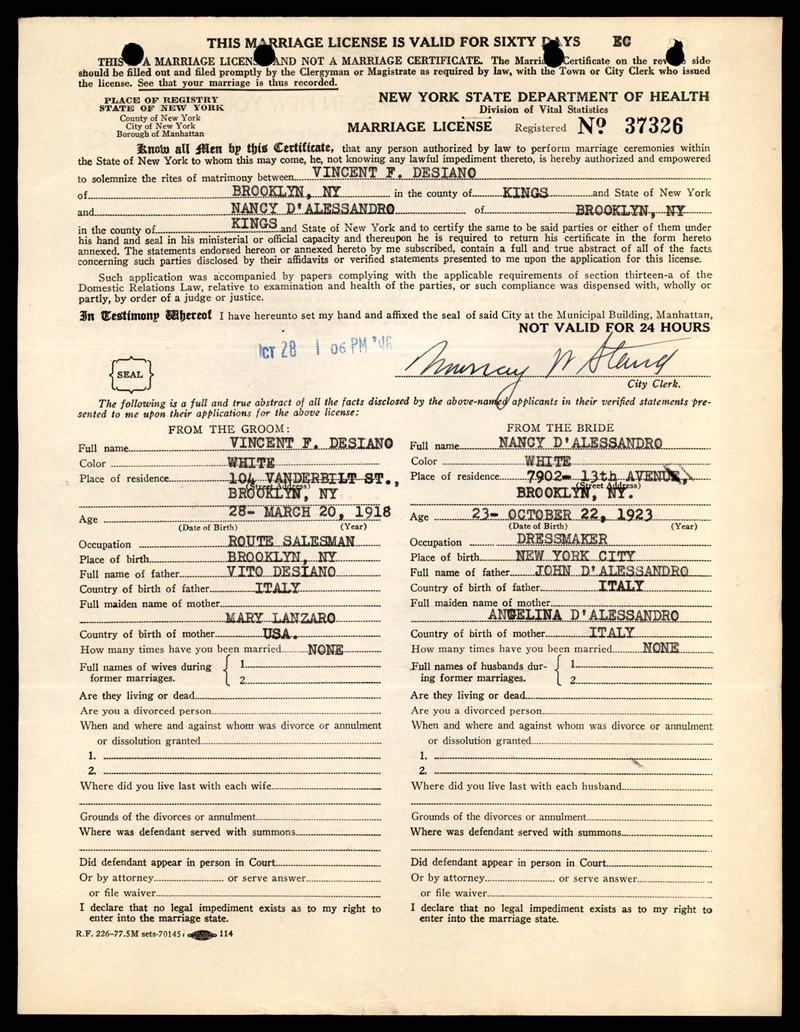 THIS MARRIAGE LICENSE IS VALID FOR SIXTY DAYS EC
THIS A MARRIAGE LICENSE AND NOT A MARRIAGE CERTIFICATE. The Marriage Certificate on the reverse side
should be filled out and filed promptly by the Clergyman or Magistrate as required by law, with the Town or City Clerk who issued
the license. See that your marriage is thus recorded.
PLACE OF REGISTRY
STATE OF NEW YORK
County of New York
City of New York
Borough of Manhattan
NEW YORK STATE DEPARTMENT OF HEALTH
Division of Vital Statistics
MARRIAGE LICENSE Registered No 37326
Know all Men by this Certificate, that any person authorized by law to perform marriage ceremonies within
the State of New York to whom this may come, he, not knowing any lawful impediment thereto, is hereby authorized and empowered
to solemnize the rites of matrimony between VINCENT F. DESIANO
of BROOKLYN, NY in the county of KINGS and State of New York
and NANCY D'ALESSANDRO of BROOKLYN, NY
in the county of KINGS and State of New York and to certify the same to be said parties or either of them under
his hand and seal in his ministerial or official capacity and thereupon he is required to return his certificate in the form hereto
annexed. The statements endorsed hereon or annexed hereto by me subscribed, contain a full and true abstract of all of the facts
concerning such parties disclosed by their affidavits or verified statements presented to me upon the application for this license.
Such application was accompanied by papers complying with the applicable requirements of section thirteen-a of the
Domestic Relations Law, relative to examination and health of the parties, or such compliance was dispensed with, wholly or
partly, by order of a judge or justice.
In Testimony Whereof I have hereunto set my hand and affixed the seal of said City at the Municipal Building, Manhattan,
NOT VALID FOR 24 HOURS
OCT 28 1 06 PM '46
SEAL
Murray W Stand
City Clerk.
The following is a full and true abstract of all the facts disclosed by the above-named applicants in their verified statements pre-
sented to me upon their applications for the above license:
FROM THE GROOM:
Full name VINCENT F. DESIANO
Color WHITE
Place of residence 104 VANDERBILT ST.,
(Street Address)
BROOKLYN, NY
Age 28- MARCH 20, 1918
(Date of Birth) (Year)
Occupation ROUTE SALESMAN
Place of birth BROOKLYN, NY
Full name of father VITO DESIANO
Country of birth of father ITALY
Full maiden name of mother
MARY LANZARO
Country of birth of mother USA.
How many times have you been married NONE
Full names of wives during
former marriages.
1
2
Are they living or dead
Are you a divorced person
When and where and against whom was divorce or annulment
or dissolution granted
1.
2.
Where did you live last with each wife
Grounds of the divorces or annulment
Where was defendant served with summons
Did defendant appear in person in Court
Or by attorney or serve answer
or file waiver
I declare that no legal impediment exists as to my right to
enter into the marriage state.
FROM THE BRIDE
Full name NANCY D'ALESSANDRO
Color WHITE
Place of residence 7902- 13th AVENUE,
(Street Address)
BROOKLYN, NY.
Age 23- OCTOBER 22, 1923
(Date of Birth) (Year)
Occupation DRESSMAKER
Place of birth NEW YORK CITY
Full name of father JOHN D'ALESSANDRO
Country of birth of father ITALY
Full maiden name of mother
ANGELINA D'ALESSANDRO
Country of birth of mother ITALY
How many times have you been married NONE
Full names of husbands dur-
ing former marriages.
1
2
Are they living or dead
Are you a divorced person
When and where and against whom was divorce or annulment
or dissolution granted
1.
2.
Where did you live last with each husband
Grounds of the divorces or annulment
Where was defendant served with summons
Did defendant appear in person in Court
Or by attorney or serve answer
or file waiver
I declare that no legal impediment exists as to my right to
enter into the marriage state.
R.F. 226-77.5M sets-70145 114